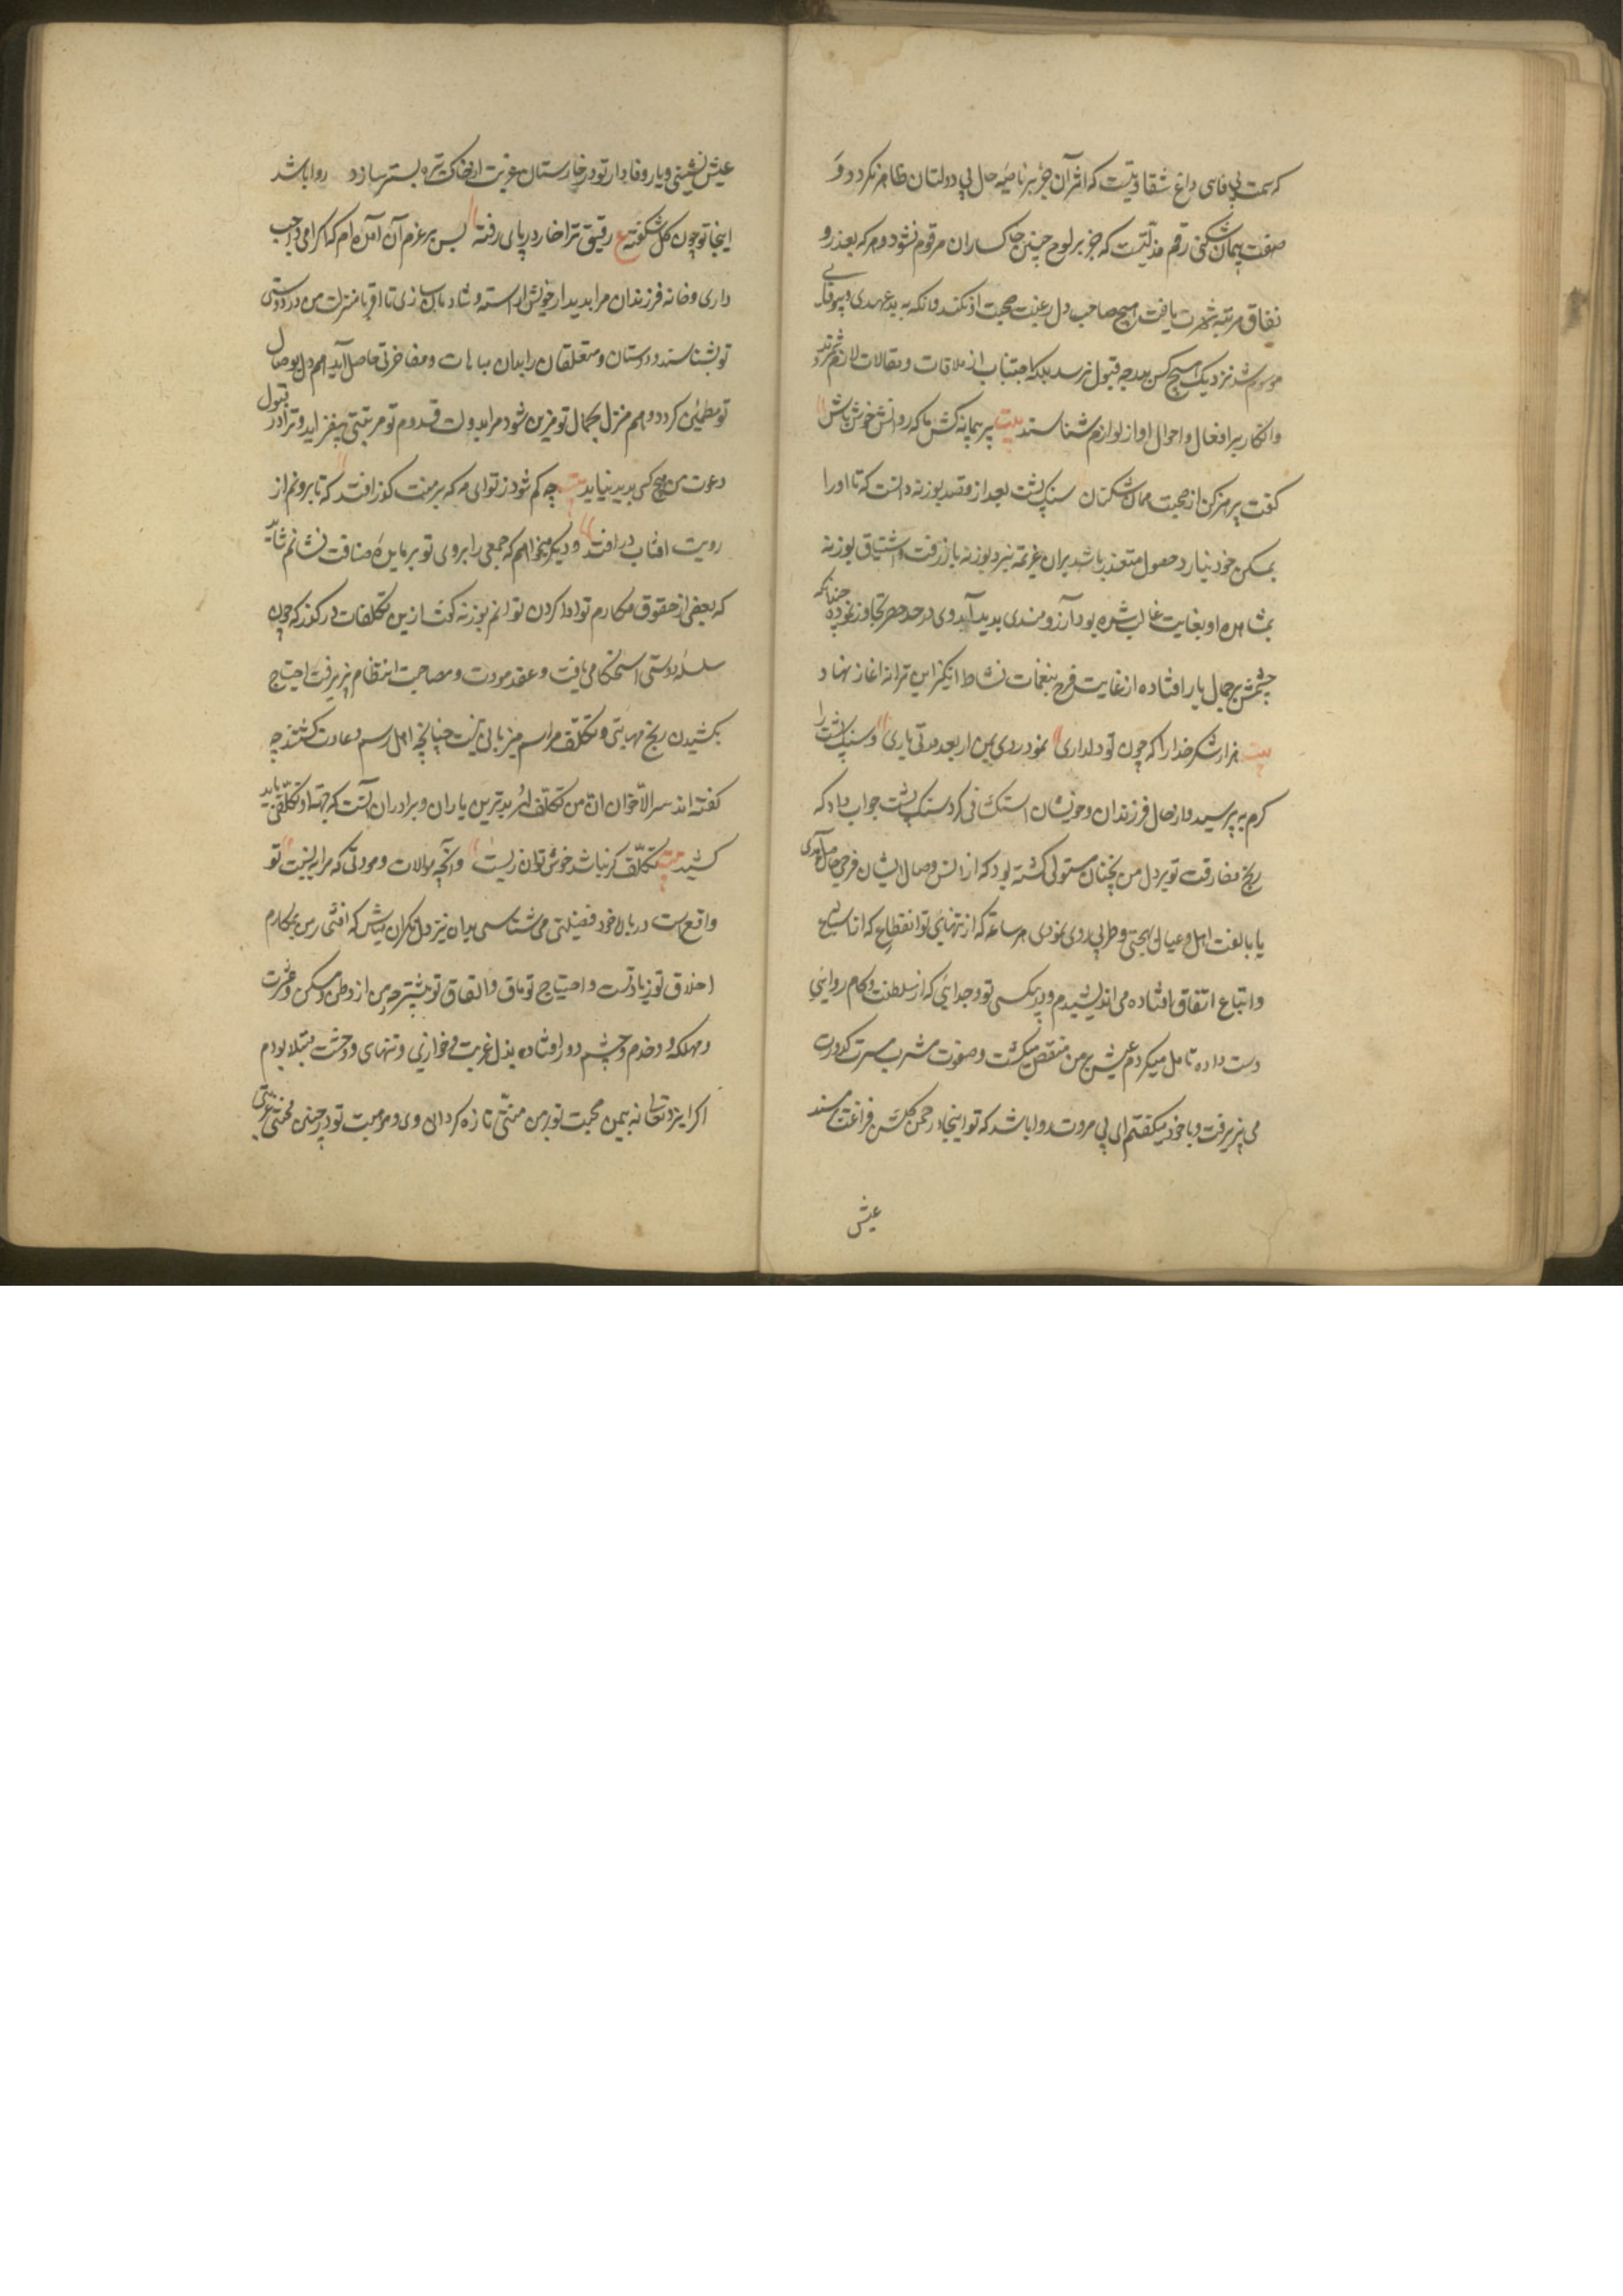 که سمت بی وفایی داغ شقاوتیست که اثر آن جز بر ناصیه حال بی دولتان ظاهر نکردد و
صفت پیمان شکنی رقم مذلتیست که جز بر لوح جبین خاکساران مرقوم نشود و هر که بعذر و
نفاق مرتبه شهرت یافت هیچ صاحب دل رغبت صحبت او نکند و آنکه به بدعهدی و بیوفایی
موسوم شد نزدیک هیچ کس بدرجه قبول نرسد بلکه اجتناب از ملاقات و مقالات لازم شمرند
و انکار بر افعال و احوال او از لوازم شناسند بیت پیر پیمانه کش ما که روانش خوش باش
کفت پرهیز کن از صحبت پیمان شکنان سنک پشت بعد از مقصد بوزنه دانست که تا او را
بمسکن خود نیارد حصول متعذر باشد بران عزیمة بنزد بوزنه باز رفت و اشتیاق بوزنه
بمشاهده او بغایت غالب شده بود آرزومندی بدید آمد وی در حد حصر تجاوز نموده چنانکه
چشمش بر جمال یار افتاده از غایت فرح بنغمات نشاط انکیز این ترانه آغاز نهاد
بیت هزار شکر خدا را که چون تو دلداری نمود روی بمن از بعد مدتی یاری و سنک پشت را
کرم به پرسید و از حال فرزندان و خویشان استکشافی کرد سنک پشت جواب داد که
رنج مفارقت تو بر دل من نچنان مستولی کشته بود که از انس وصال ایشان فرحی حاصل آمدی
یا بالفت اهل و عیال بهجتی و طربی روی نمودی هر ساعة که از تنهایی تو انقطاع که از اشیاع
و اتباع اتفاق افتاده می اندیشیدم و بر بیکسی تو و جدایی که از سلطنت و کام روایی
دست داده تامل میکردم عیش بر من منغص میکشت و صفوت مشرب مسرت کدورت
می پذیرفت و با خود میکفتم ای بی مروت روا باشد که تو اینجا در چمن کلشن فراغت مسند
عیش
عیش نشینی و یار وفادار تو در خارستان غربت از خاک تیره بستر سازد روا باشد
اینجا تو چون کل شکفته ع رفیق ترا خار در پای رفته پس بر عزم آن آمده ام که اکرامی واجب
داری و خانه فرزندان مرا بدیدار خویش آراسته و شادمان سازی تا اقربا منزلت من در دوستی
تو بشناسند و دوستان و متعلقان را بدان مباهات و مفاخرتی حاصل آید هم دل بوصال
تو مطمئن کردد و هم منزل بجمال تو مزین شود مرا بدولت قدوم تو مرتبتی بیفزاید و ترا در قبول
دعوت من هیچ کمی پدید نیاید بیت چه کم شود ز تو ای مه که بر منت کذر افتد که تا برونم از
رویت آفتاب در افتد و دیکر میخواهم که جمعی را بروی تو بر مایده ضیافت نشانم شاید
که بعضی از حقوق مکارم تو ادا کردن توانم بوزنه کفت ازین تکلفات در کذر که چون
سلسله دوستی استحکام یافت و عقد مودت و مصاحبت انتظام پذیرفت احتیاج
بکشیدن رنج مهمانی و تکلف مراسم میزبانی نیست چنانچه اهل رسم و عادت کنند چه
کفته اند شر الاخوان من تکلف له بدترین یاران و برادران آنست که بجهة او تکلفی باید
کشید بیت تکلف کر نباشد خوش توان زیست و آنچه موالات و مودتی که مرا به نسبت تو
واقع ست در بالا خود فضیلتی می شناسی بدان نیز دل نکران مباش که افتخار من بمکارم
اخلاق تو زیادتست و احتیاج تو ماق و اتفاق تو بیشتر چه من از وطن و مسکن و عشیرت
و مملکه و خدم و حشم دور افتاده بذل غربت و خواری و تنهای و وحشت مبتلا بودم
اکر ایزد تعالی نه بیمن محبت تو بر من منتی تازه کردانیدی و موهبت تو در چنین محنتی